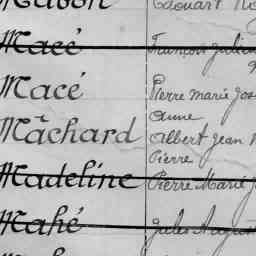 Macé François Julien
Macé Pierre marie Jos
anne
Mâchard Albert Jean
Pierre
Madeline Pierre Marie J
Mahé Jules August